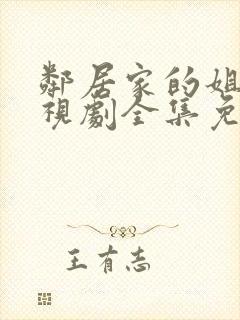 鄰居家的姐
視劇全集免
王有志